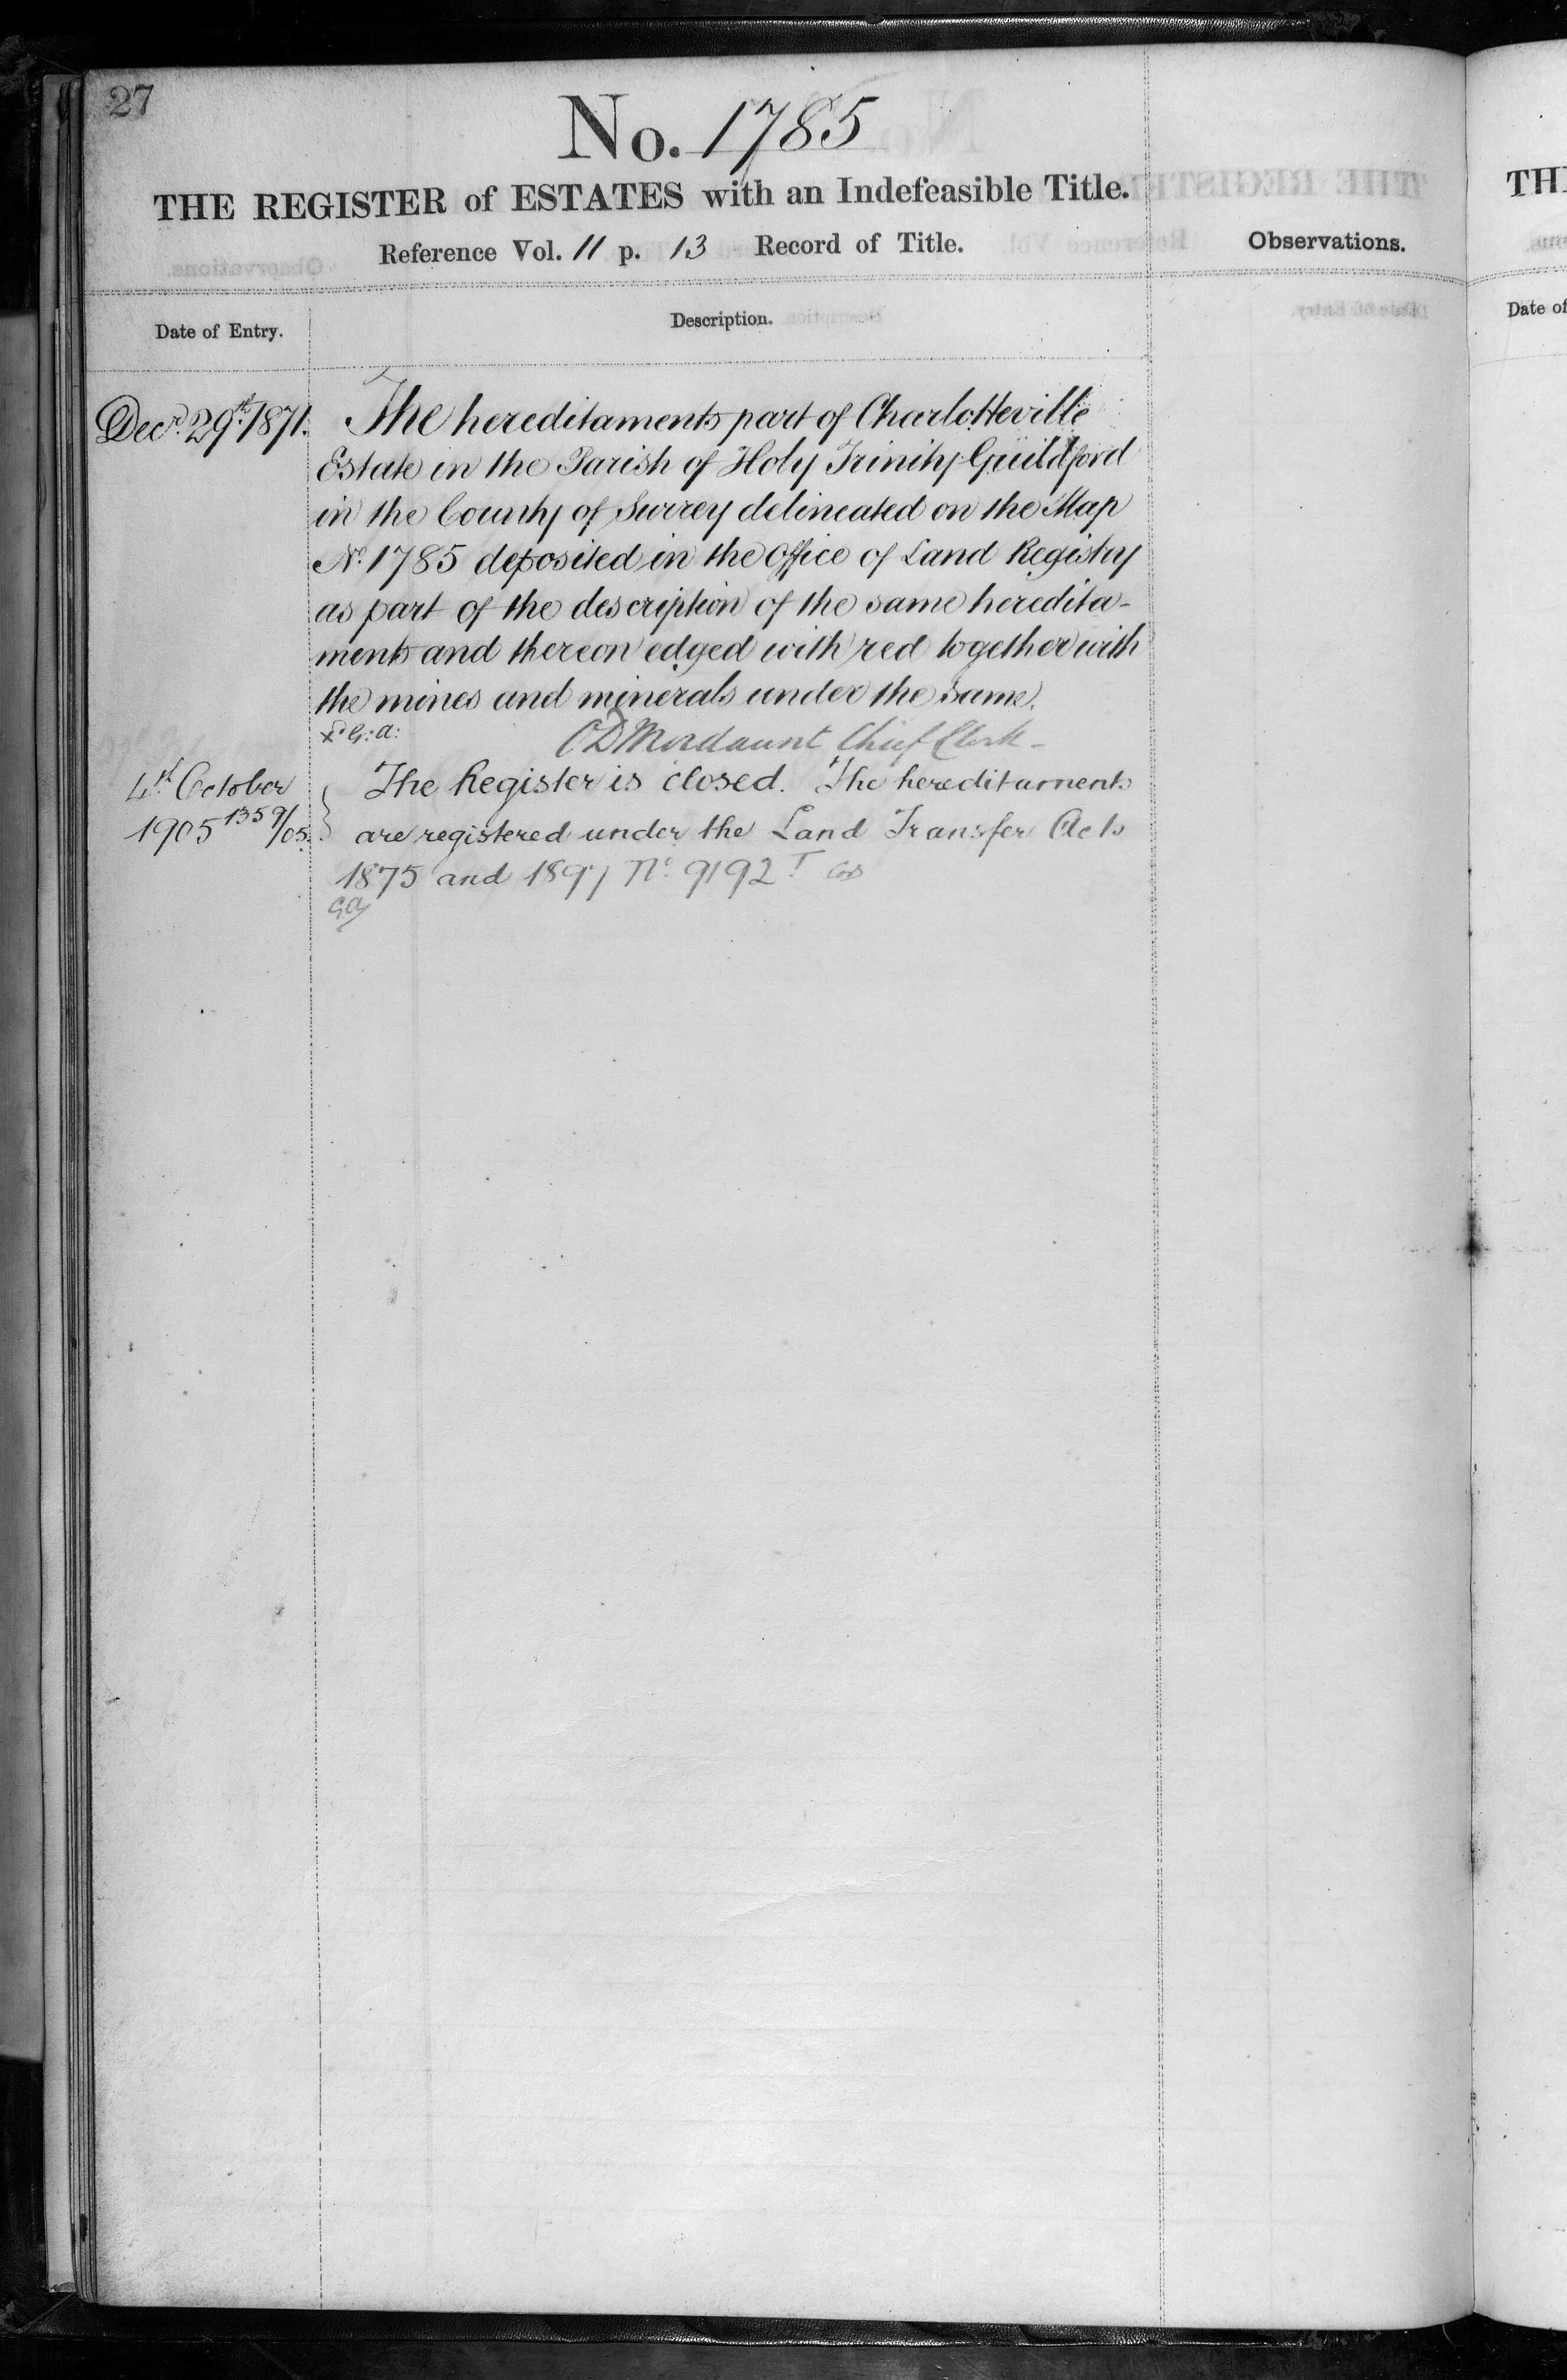 27
No. 1785
THE REGISTER of ESTATES with an Indefeasible Title.
Reference Vol. 11 p. 13 Record of Title.
Observations.
Date of Entry.
Description.
Decr. 29th. 1871.
The hereditaments part of Charlotteville
Estate in the Parish of Holy Trinity Guildford
in the County of Surrey delineated on the Map
No. 1785 deposited in the Office of Land Registry
as part of the description of the same heredita-
ments and thereon edged with red together with
the mines and minerals under the same.
G: A:
C D Mordaunt Chief Clerk -
4th October
1905 1359/05.
The Register is closed. The hereditaments
are registered under the Land Transfer Acts
1875 and 1897 No. 9192
GA
TH
Date of